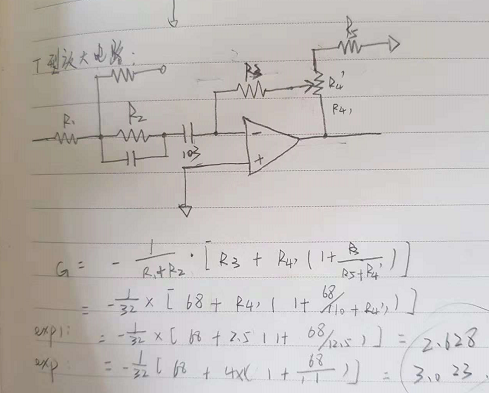 T型放大电路:
R5
R3
R4'
R4,
R1
R2
103
-
+
G = - 1/(R1+R2) · [ R3 + R4, ( 1 + R3/(R5+R4') ) ]
= - 1/32 × [ 68 + R4, ( 1 + 68/(10 + R4') ) ]
exp1: = - 1/32 × [ 68 + 2.5 ( 1 + 68/12.5 ) ] = 2.628
exp: = - 1/32 [ 68 + 4×( 1 + 68/11 ) ] = 3.023